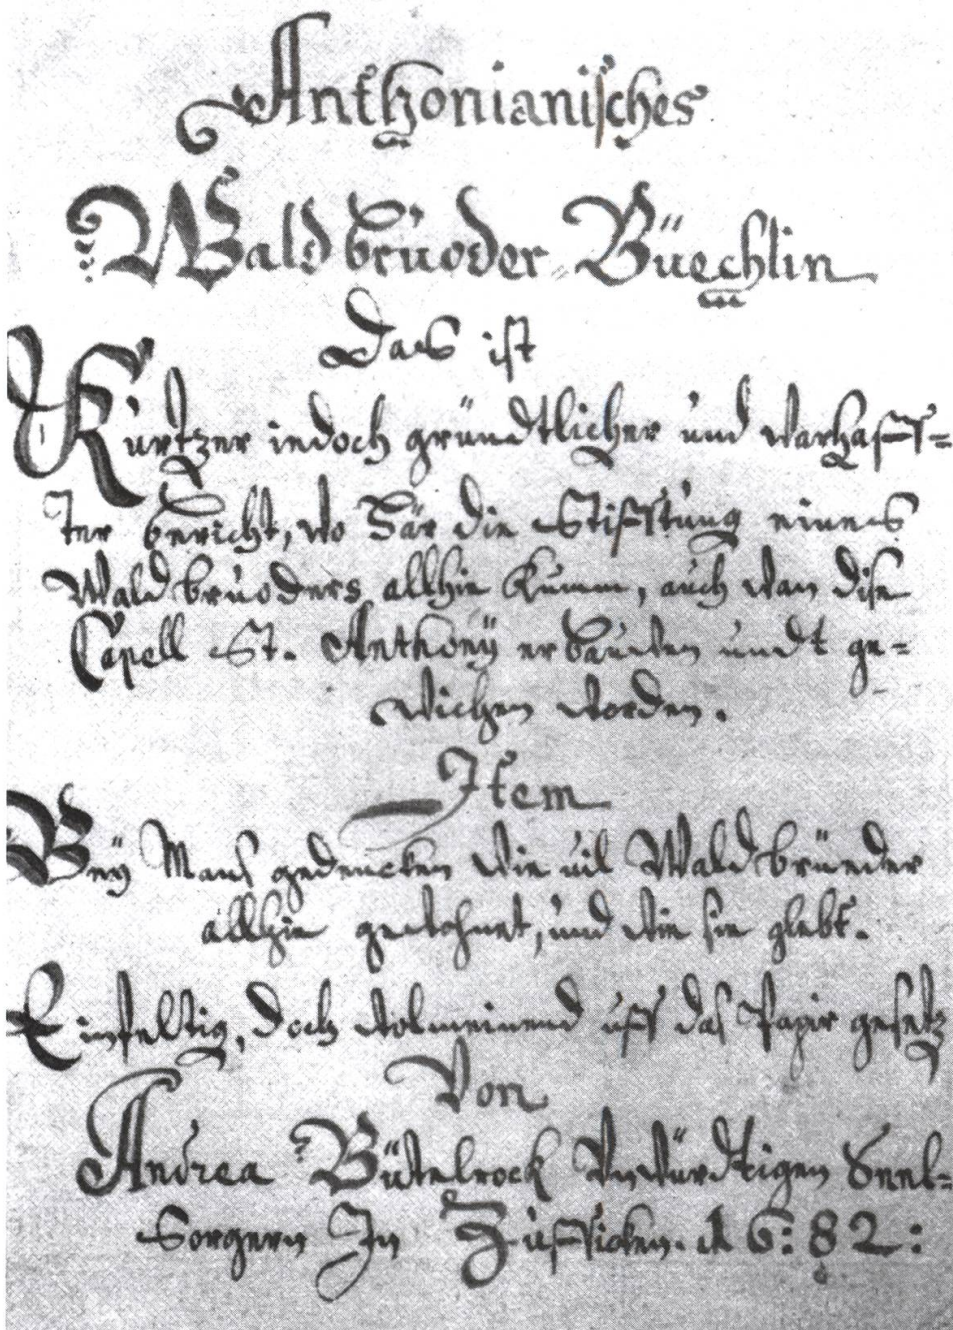 Anthonianisches
Waldbruoder Büechlin
Das ist
Kurtzer iedoch gründtlicher und warhaff-
ter bericht, wo här die Stifftung eines
Waldbruoders allhie kumm, auch wan dise
Capell St. Anthony erbauwen undt ge-
wichen worden.
Item
Bey Mans gedencken wie vil Waldbrüeder
allhie gewohnet, und wie sie glebt.
Einfeltig, doch wolmeinend uff das Papir gesetz
Von
Andrea Bütelrock Unwürdtigen Seel-
Sorgern In Zufficken. 16:82: